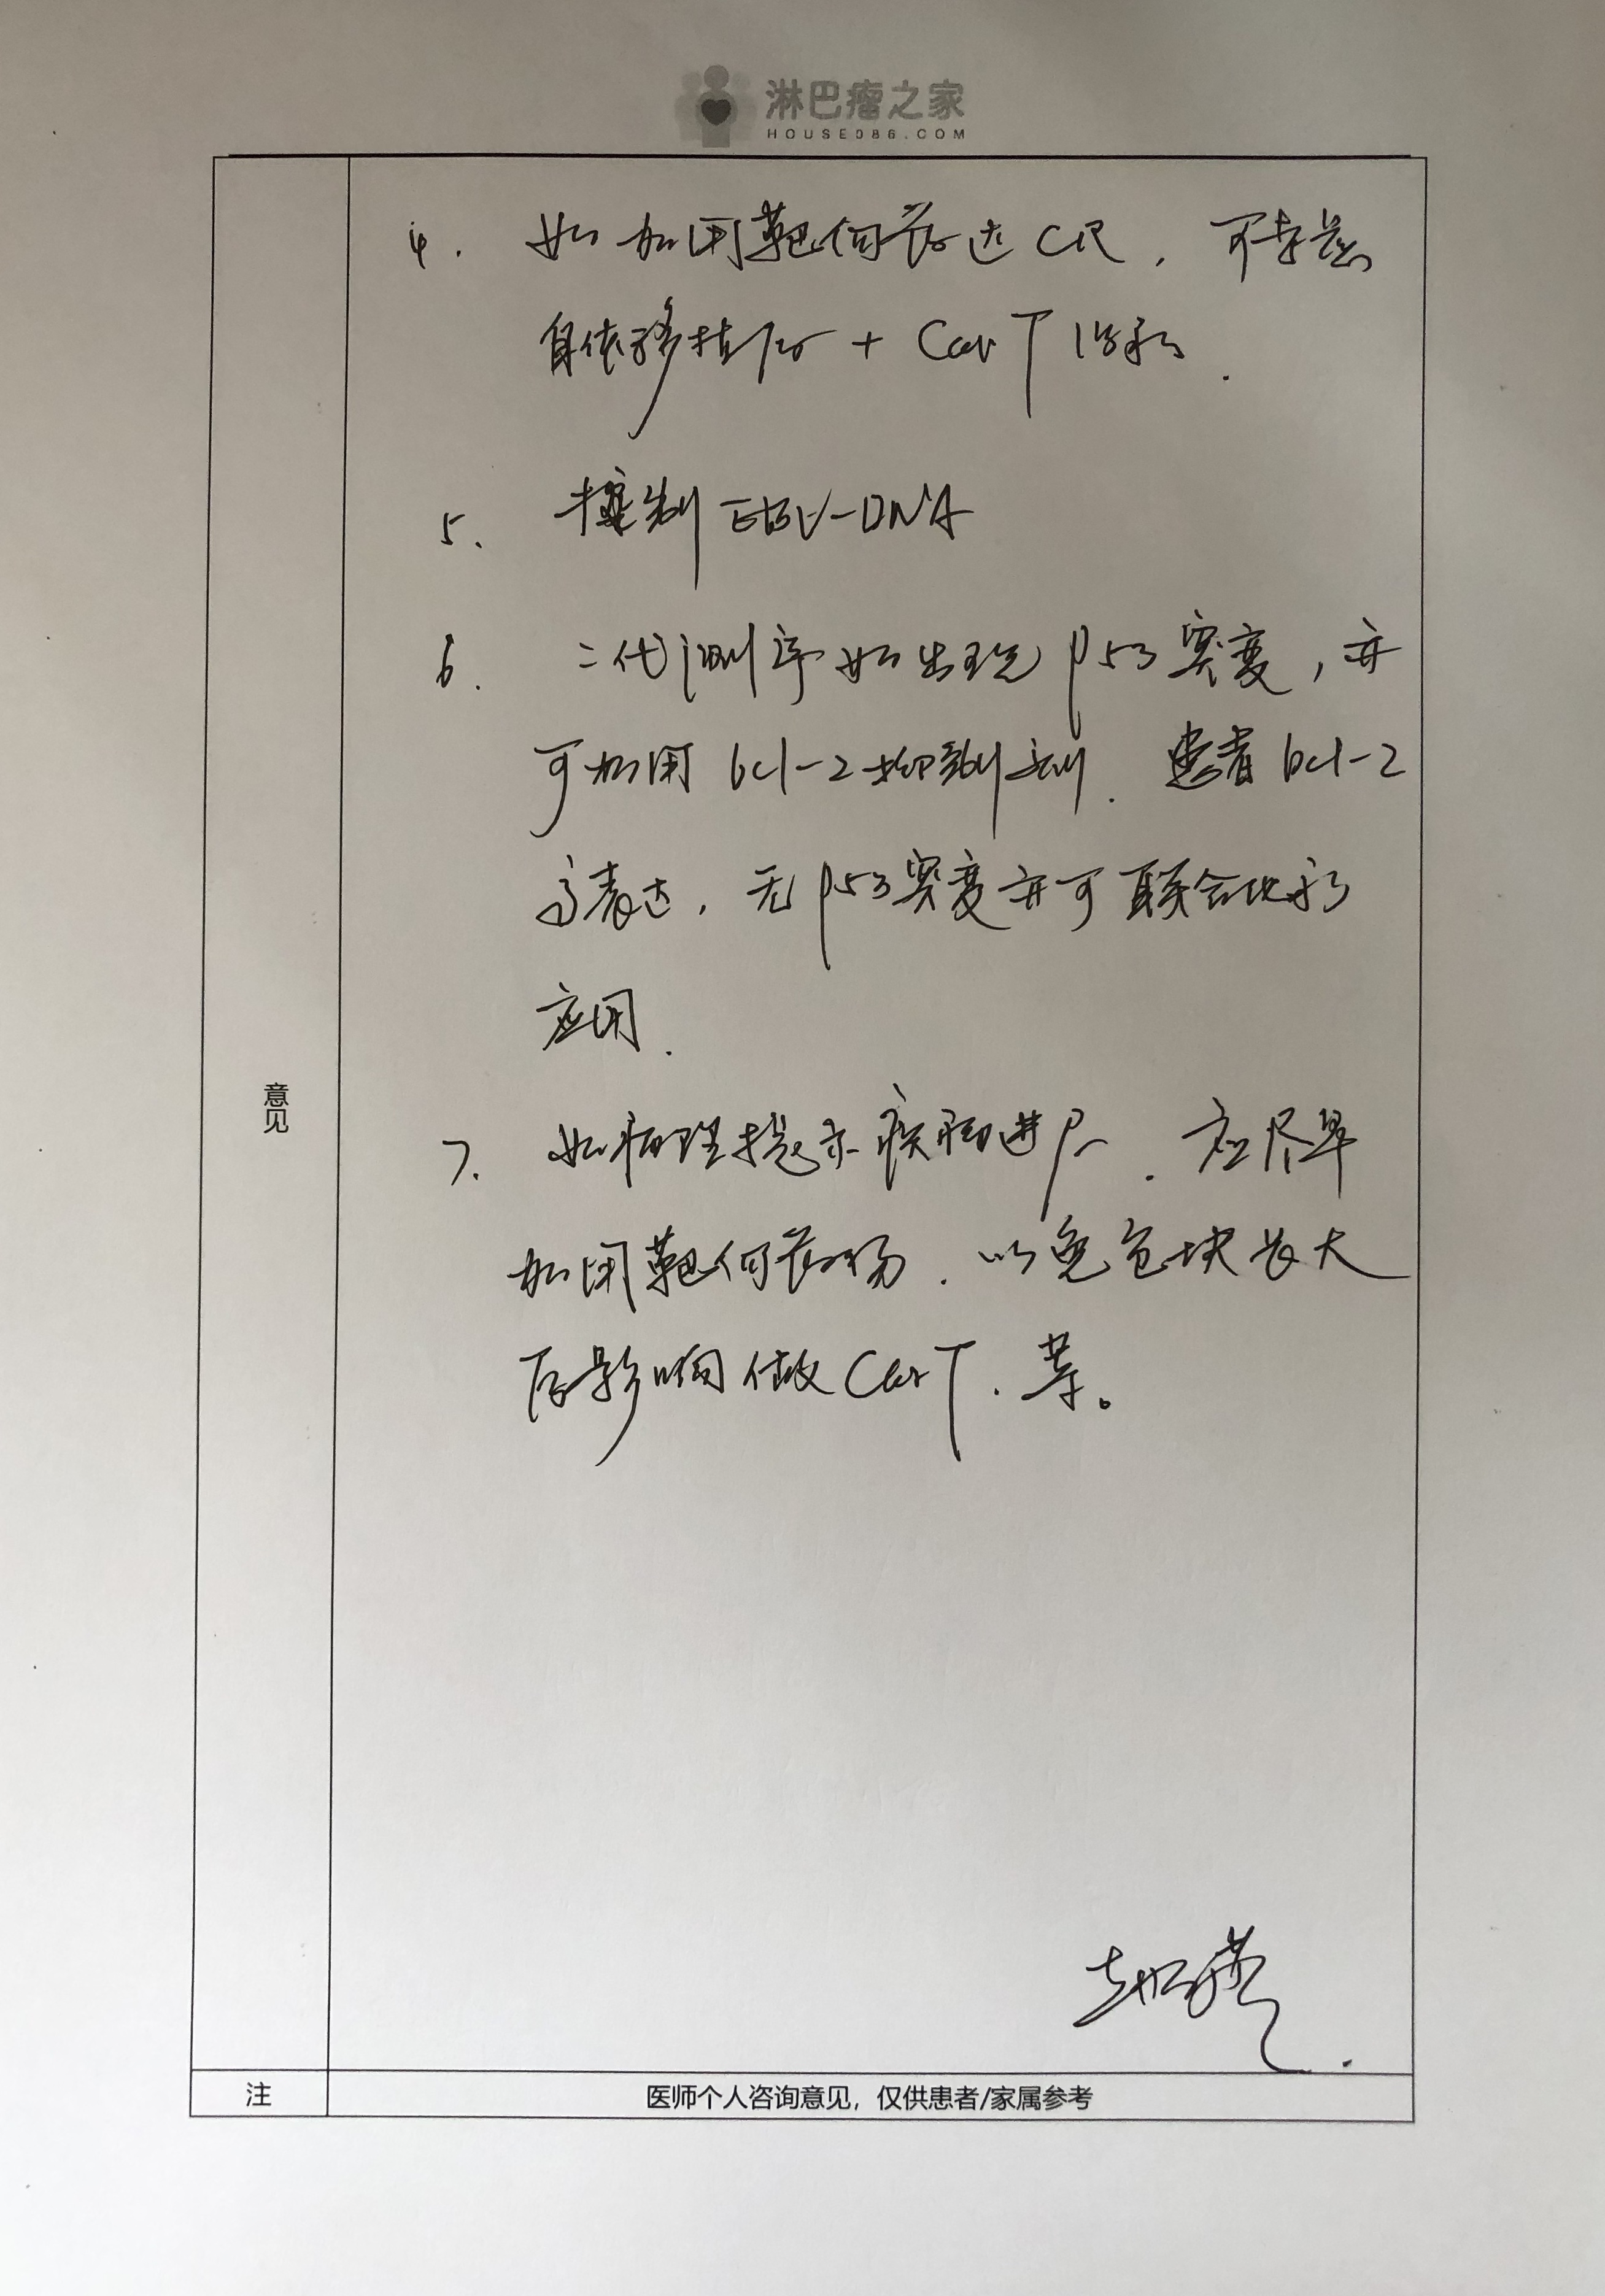 淋巴瘤之家
HOUSE086.COM
4. 如加用靶向药达CR，可考虑
自体移植后+CarT治疗.
5、控制EBV-DNA
6. 二代测序如出现p53突变，亦
可加用bcl-2抑制剂. 患者bcl-2
高表达，无p53突变亦可联合化疗
应用.
意见
7. 如病理提示疾病进展. 应尽早
加用靶向药物. 以免包块长大
后影响做CarT. 等。
注
医师个人咨询意见，仅供患者/家属参考